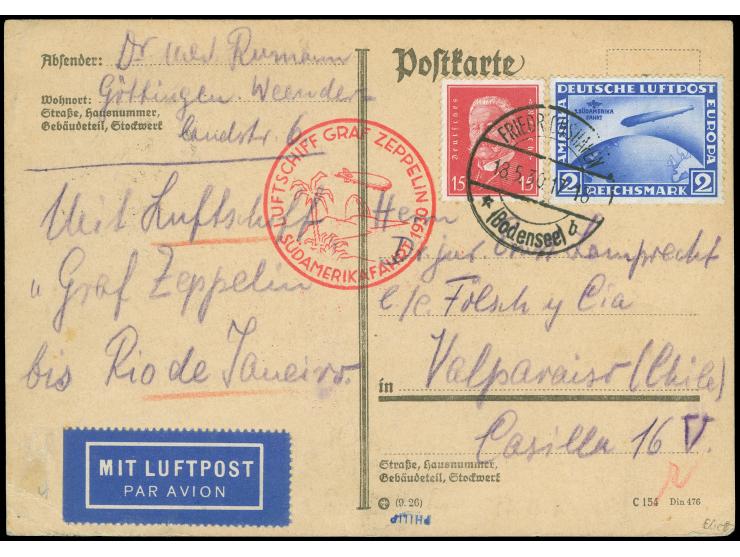 Absender: Dr med Rumann
Göttingen Weender-
Wohnort:
Straße, Hausnummer,
Gebäudeteil, Stockwerk
landstr. 6
Postkarte
Deutsches
15 15
DEUTSCHE LUFTPOST
1. SÜDAMERIKA
FAHRT
AMERIKA
EUROPA
2 REICHSMARK 2
FRIEDRICHSHAFEN
18.5.30.17-18
* (Bodensee) b
LUFTSCHIFF GRAF ZEPPELIN
SÜDAMERIKAFAHRT 1930
Mit Luftschiff
"Graf Zeppelin
bis Rio de Janeiro.
Herrn
Lamprecht
c/o. Fölsch y Cia
in Valparaiso (Chile)
Casilla 16 V.
MIT LUFTPOST
PAR AVION
Straße, Hausnummer,
Gebäudeteil, Stockwerk
(9. 26)
C 154 Din 476
PHILIP